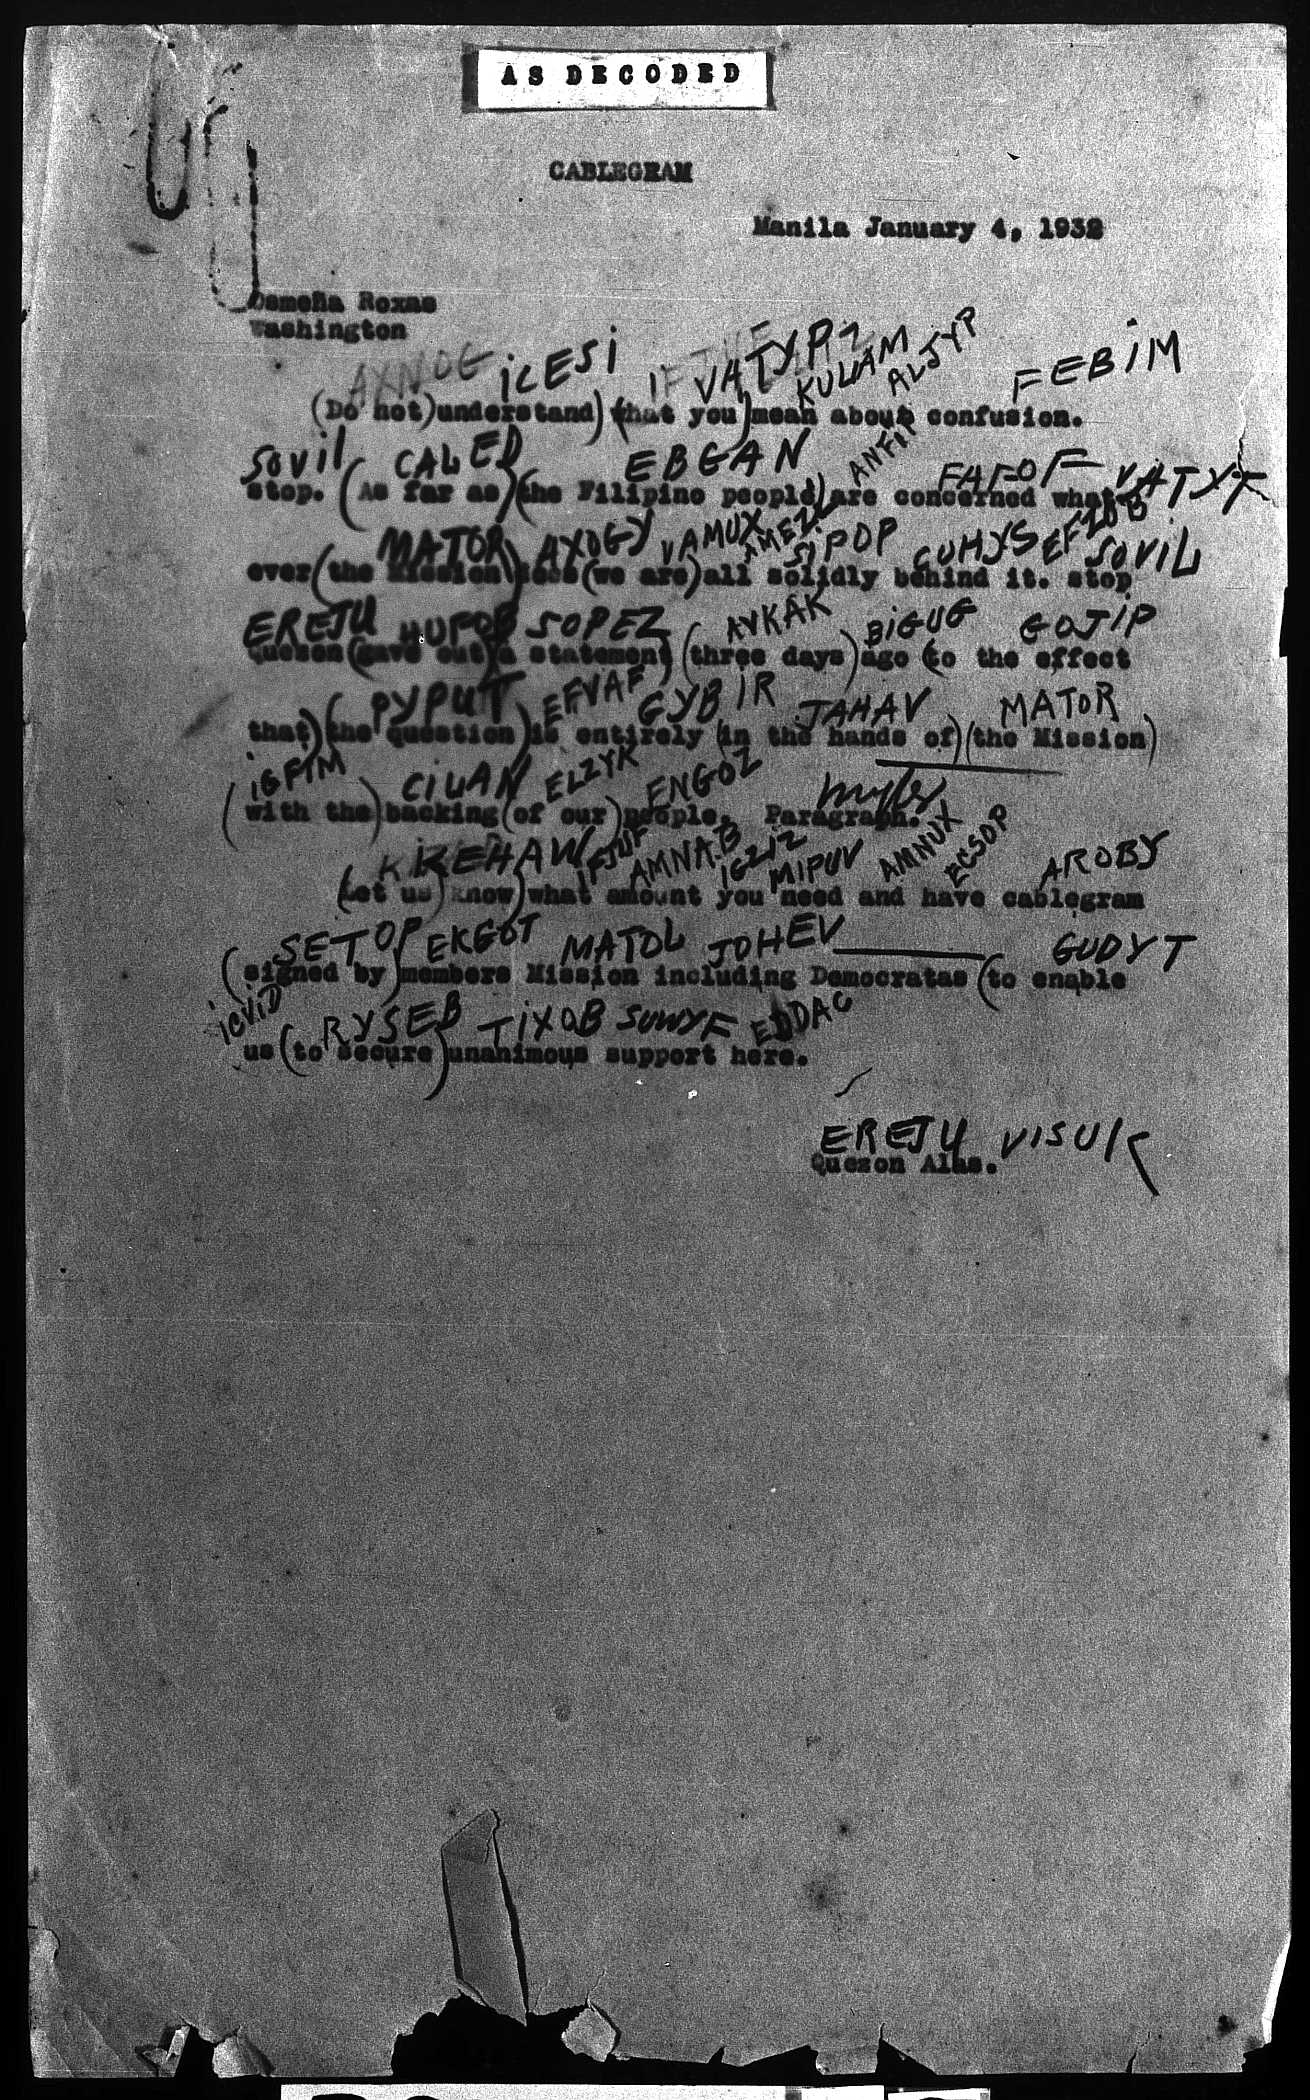 AS DECODED
CABLEGRAM
Manila January 4, 1932
Osmeña Roxas
Washington
AXNOG ICESI VATYPZ KULUAM ALJYP FEBIM
(Do not)understand)(that you)mean about confusion.
SOVIL CALED EBGAN ANFIP FAFOF VATYX
stop. (As far as)(the Filipino people)are concerned what-
MATOR AXOGY VAMUX AMEZU SIPOP CUHYS EFZOB SOVIL
ever(the Mission)does(we are)all solidly behind it. stop
EREJU SOPEZ AVKAK BIGUG GOJIP
Quezon(gave out)a statement)(three days)ago (to the effect
PYPUT EFVAF GYBIR JAHAV MATOR
that)(the question)is entirely (in the hands of)(the Mission)
CIUAN ELZYK ENGOZ
(with the)backing(of our)people. Paragraph.
KEHAW IFJUF AMNAB IGZIZ MIPUV AMNUX ECSOP AROBY
(Let us)know)what amount you need and have cablegram
SETOP EKGOT MATOL JOHEV GUDYT
(signed by)members Mission including Democratas (to enable
ICVID RYSEB TIXOB SUWYF EDDAC
us(to secure)unanimous support here.
EREJU VISUK
Quezon Alas.